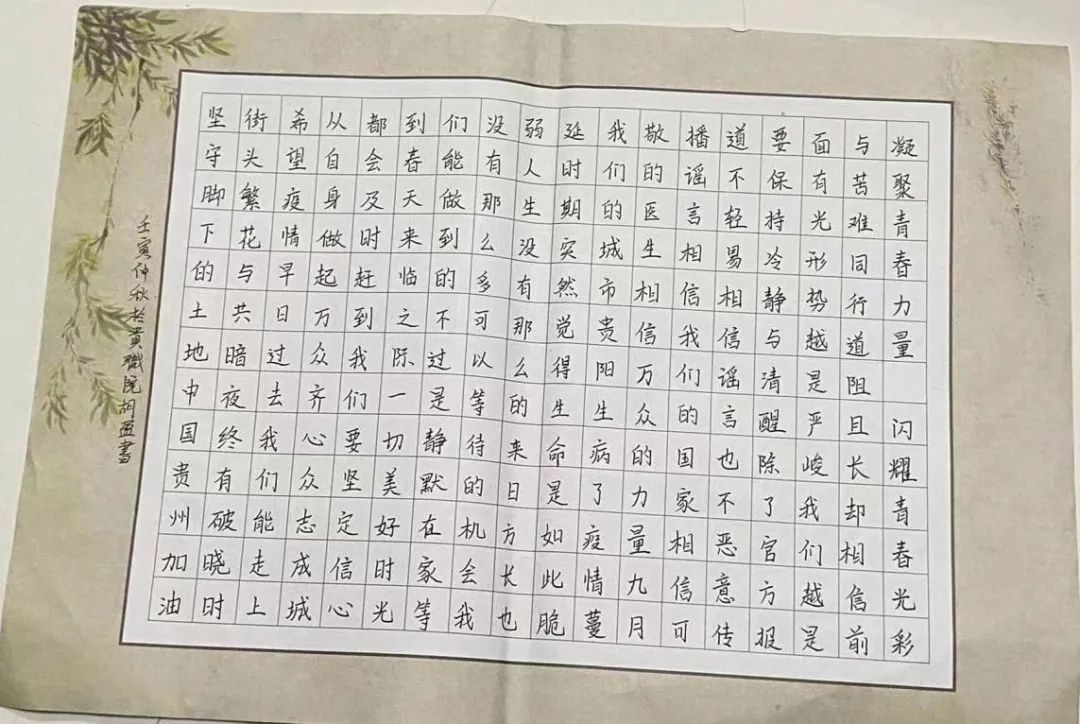 凝聚青春力量 闪耀青春光彩
与苦难同行道阻且长却相信前
面有光形势越是严峻我们越是
要保持冷静与清醒除了官方报
道不轻易相信谣言也不恶意传
播谣言相信我们的国家相信可
敬的医生相信万众的力量九月
我们的城市贵阳生病了疫情蔓
延时期实然觉得生命是如此脆
弱人生没有那么的来日方长也
没有那么多可以等待的机会我
们能做到的不过是静默在家等
到春天来临之际一切美好时光
都会及时赶到我们要坚定信心
从自身做起万众齐心众志成城
希望疫情早日过去我们能走上
街头繁花与共暗夜终有破晓时
坚守脚下的土地中国贵州加油
壬寅仲秋於貴職院胡書